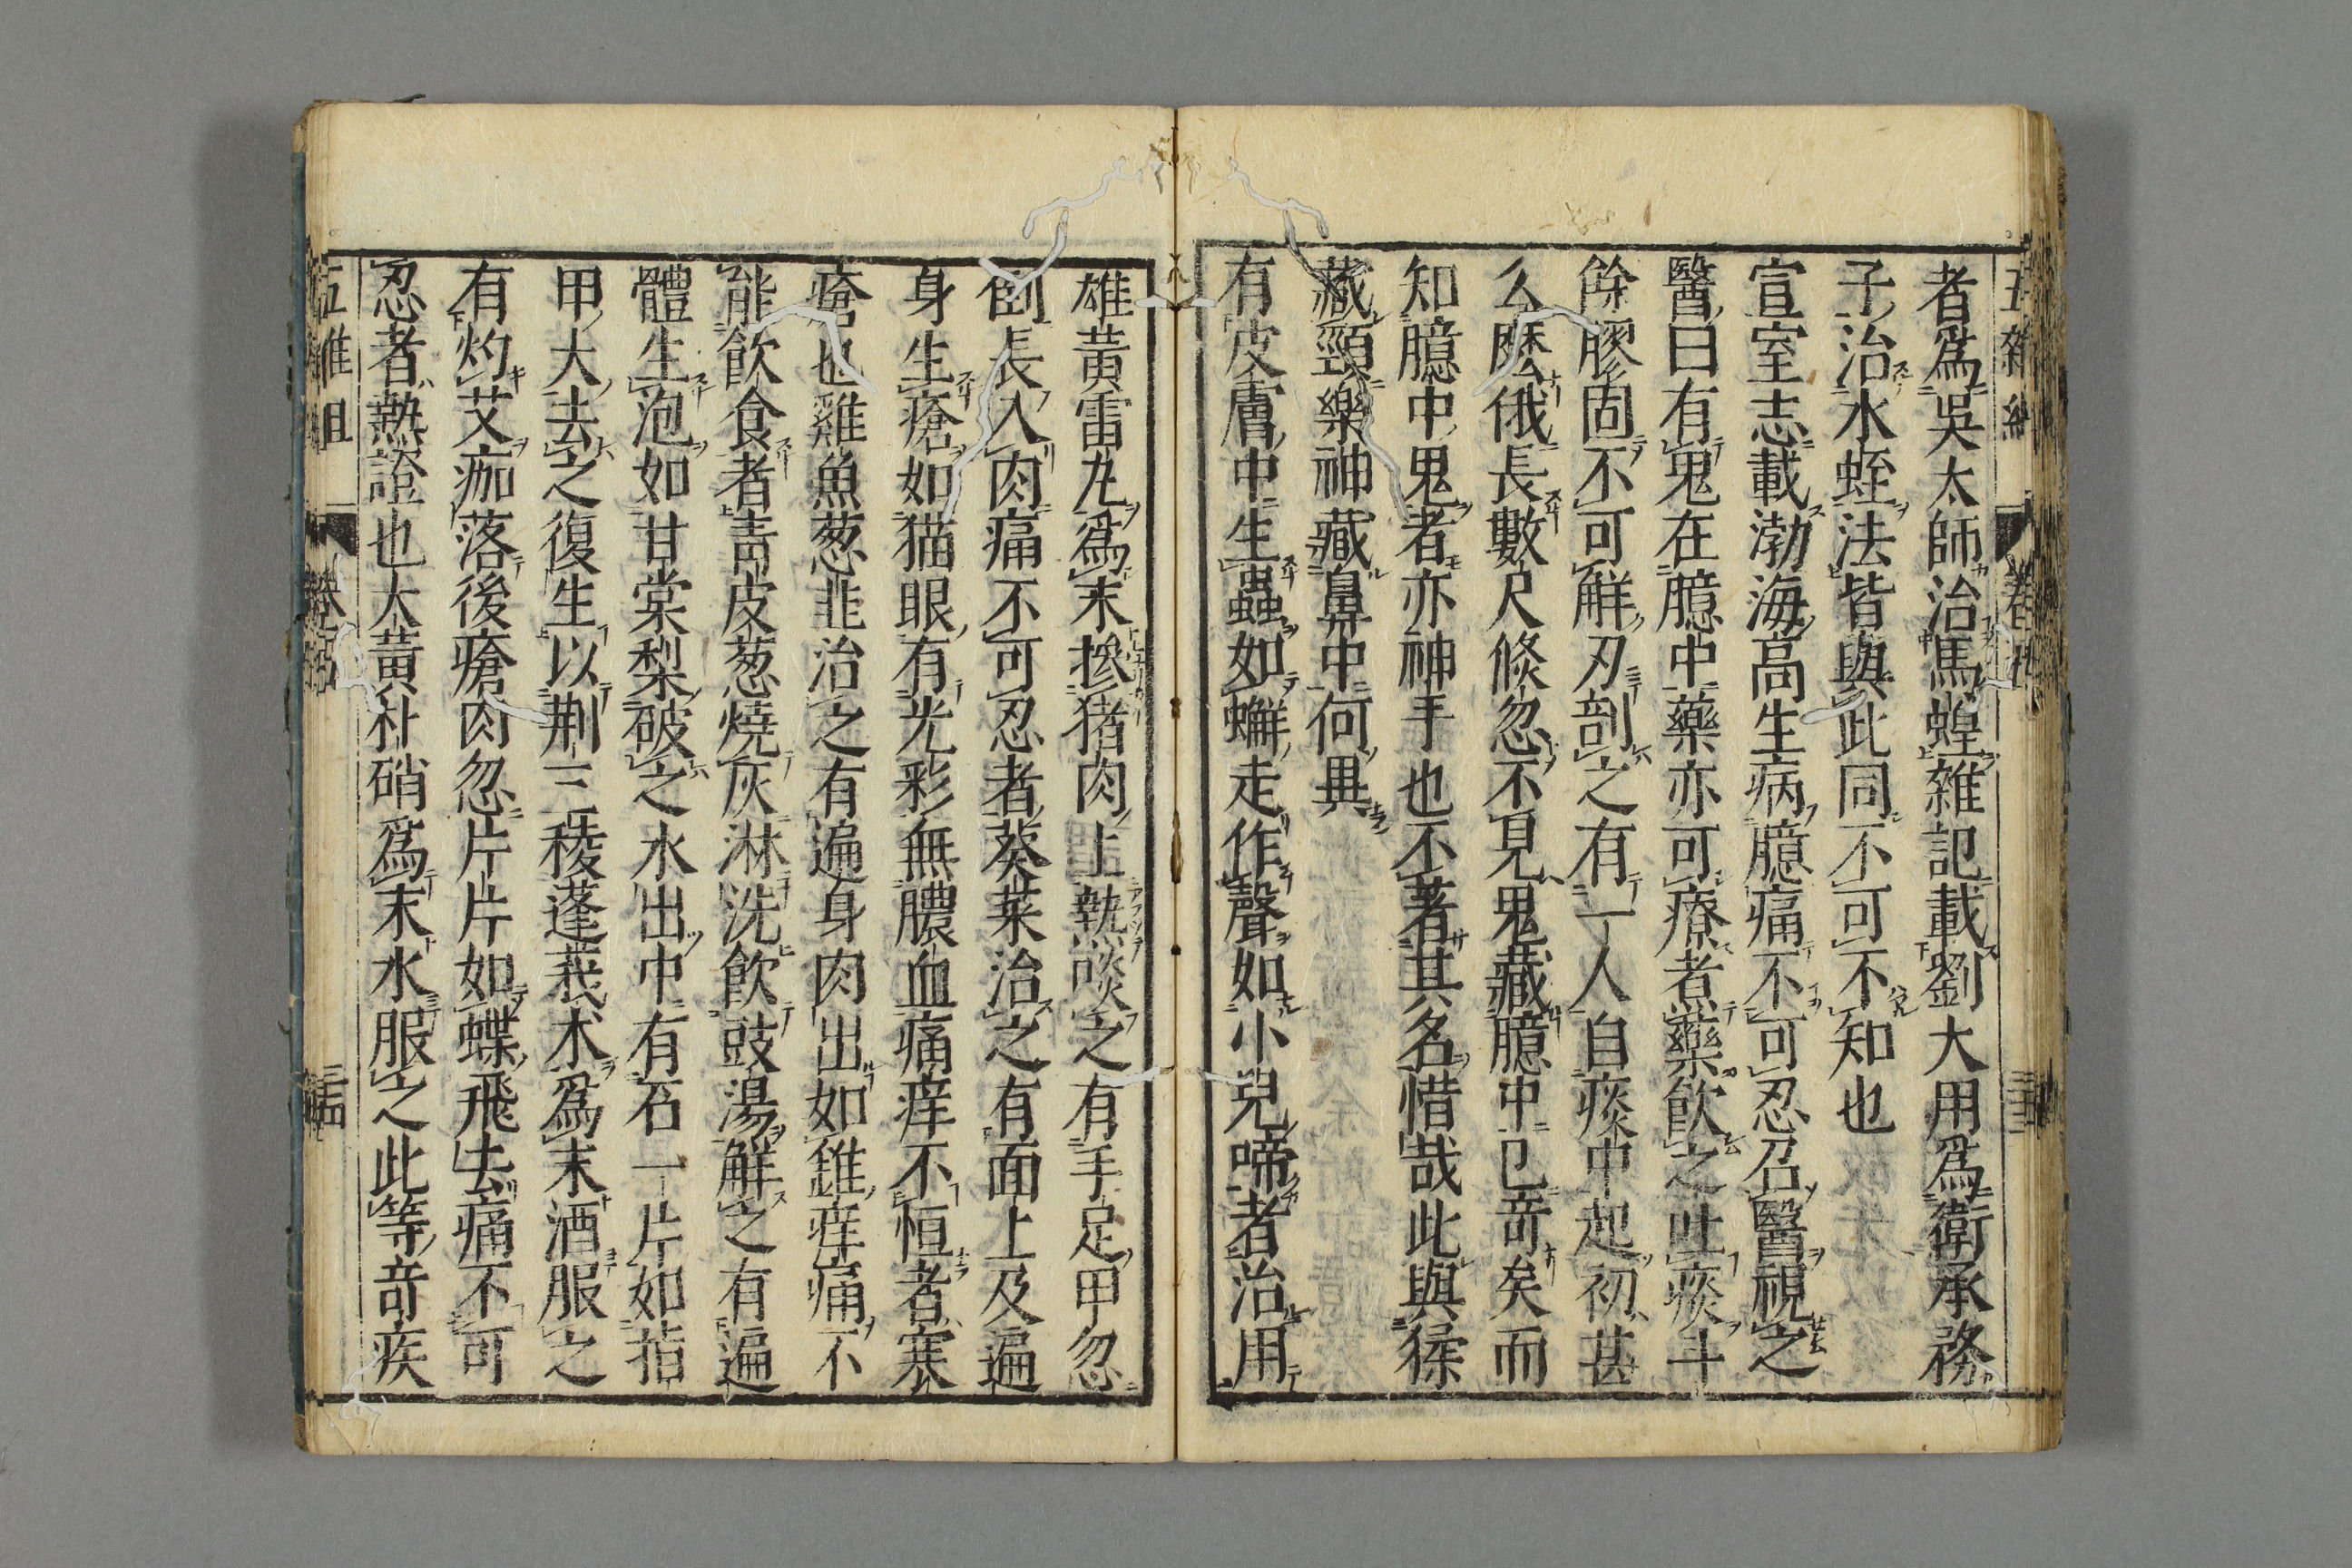 者爲吳太師治馬蝗雜記載劉大用爲衛承務
子治水蛭法皆與此同不可不知也
宣室志載渤海高生病臆痛不可忍召醫視之
醫曰有鬼在臆中藥亦可療煮藥飲之吐痰斗
餘膠固不可解刃剖之有一人自痰中起初甚
么麽俄長數尺倐忽不見鬼藏臆中已竒矣而
知臆中鬼者亦神手也不著其名惜哉此與猱
藏頸樂神藏鼻中何異
有皮膚中生蟲如蠏走作聲如小兒啼者治用
雄黃雷丸爲末摻猪肉上熱啖之有手足甲忽
倒長入肉痛不可忍者葵菜治之有面上及遍
身生瘡如猫眼有光彩無膿血痛痒不恒者寒
瘡也雞魚葱韭治之有遍身肉出如錐痒痛不
能飲食者青皮葱燒灰淋洗飲豉湯解之有遍
體生泡如甘棠梨破之水出中有石一片如指
甲大去之復生以荆三稜蓬莪朮爲末酒服之
有灼艾痂落後瘡肉忽片片如蝶飛去痛不可
忍者熱證也大黃朴硝爲末水服之此等竒疾